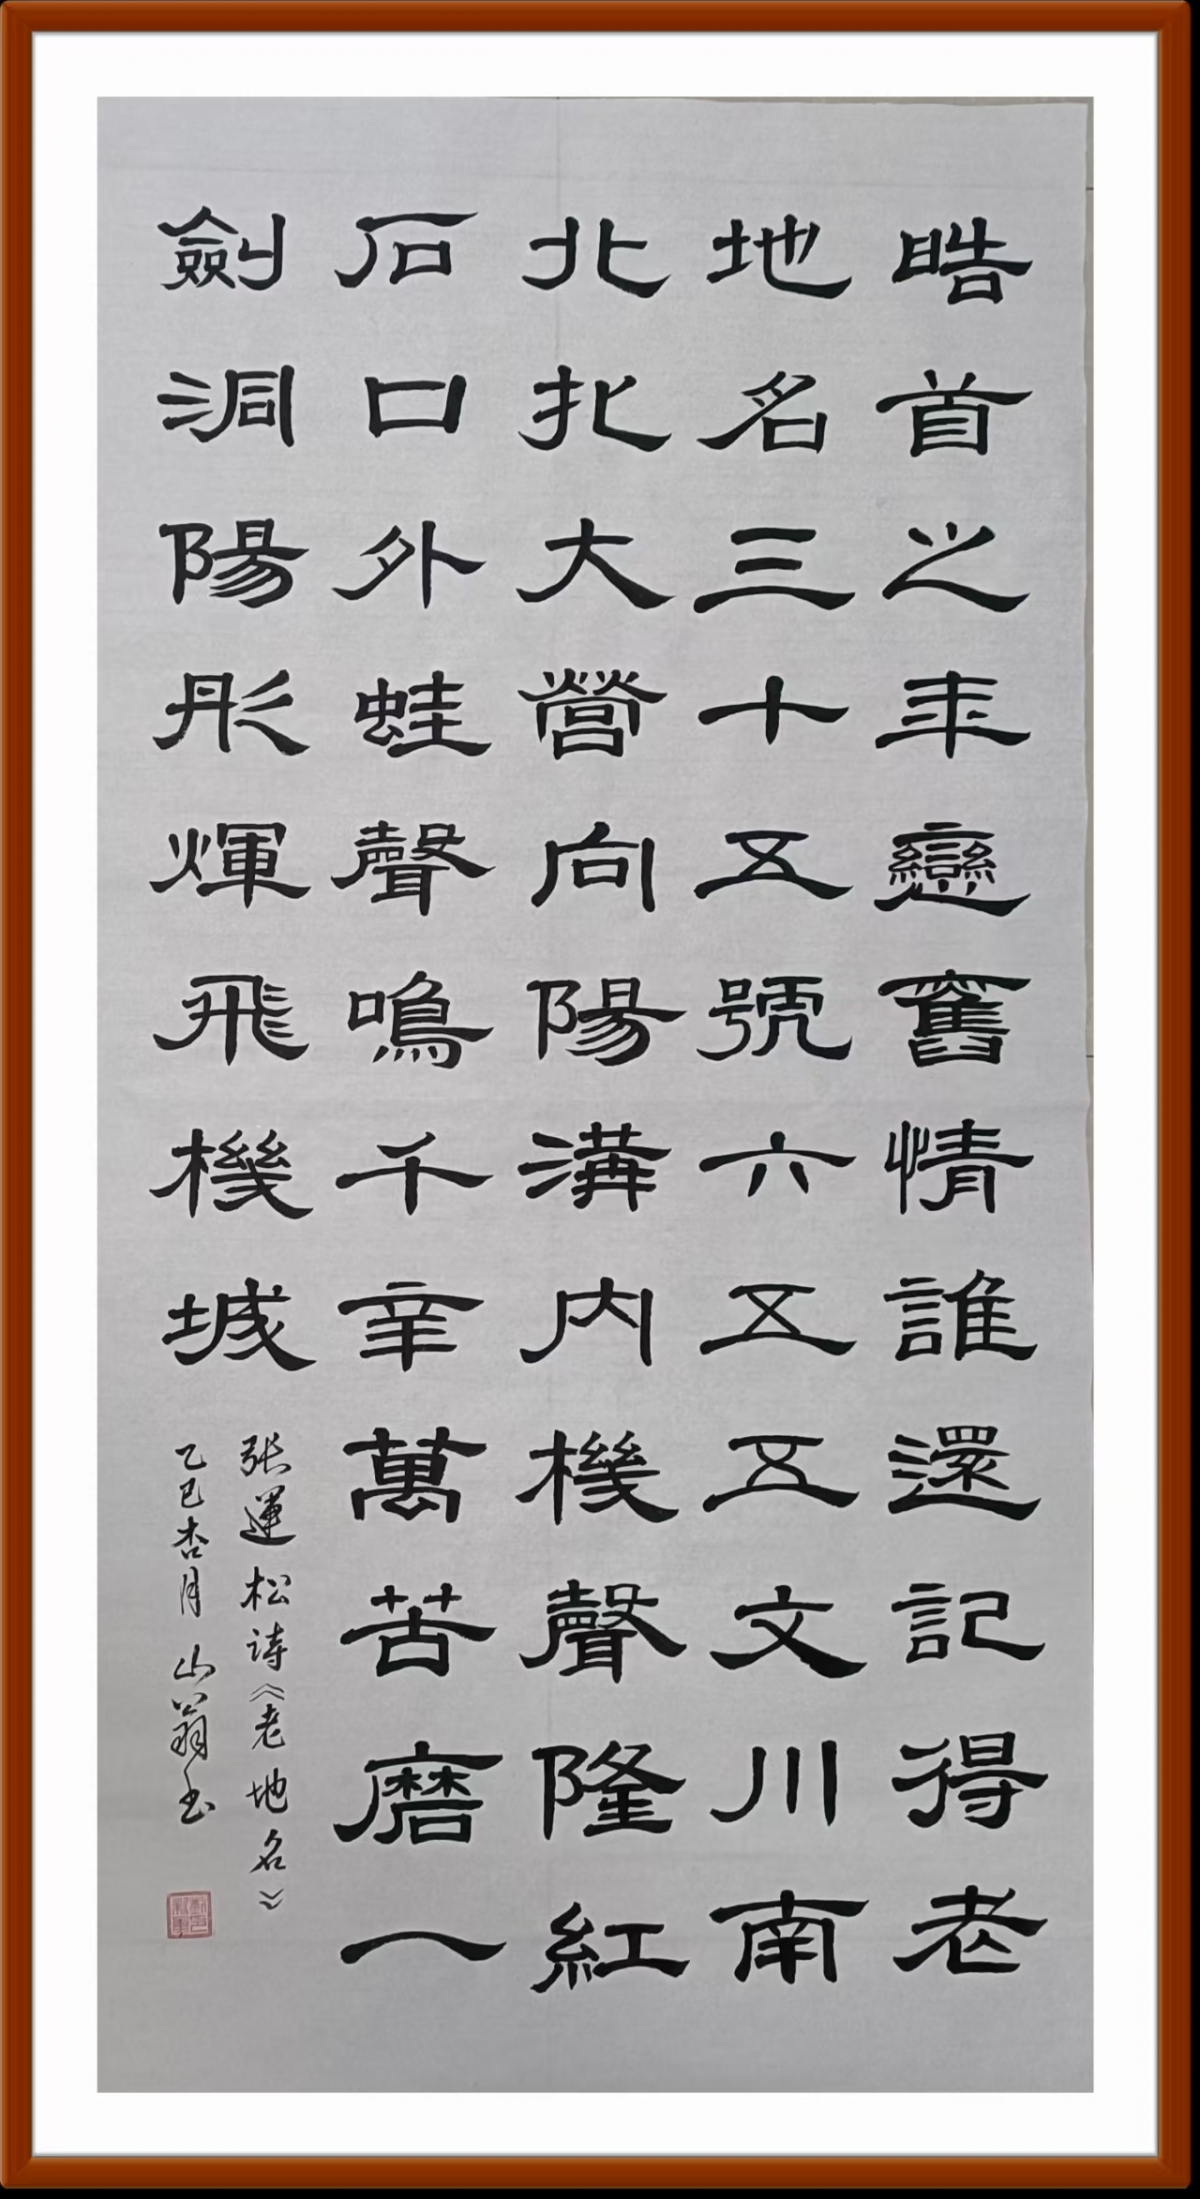 皓首之年戀舊情誰還記得老
地名三十五號六五五文川南
北扎大營向陽溝內機聲隆紅
石口外蛙聲鳴千辛萬苦磨一
劍洞陽彤輝飛機城
张運松诗《老地名》
乙巳杏月山翁书